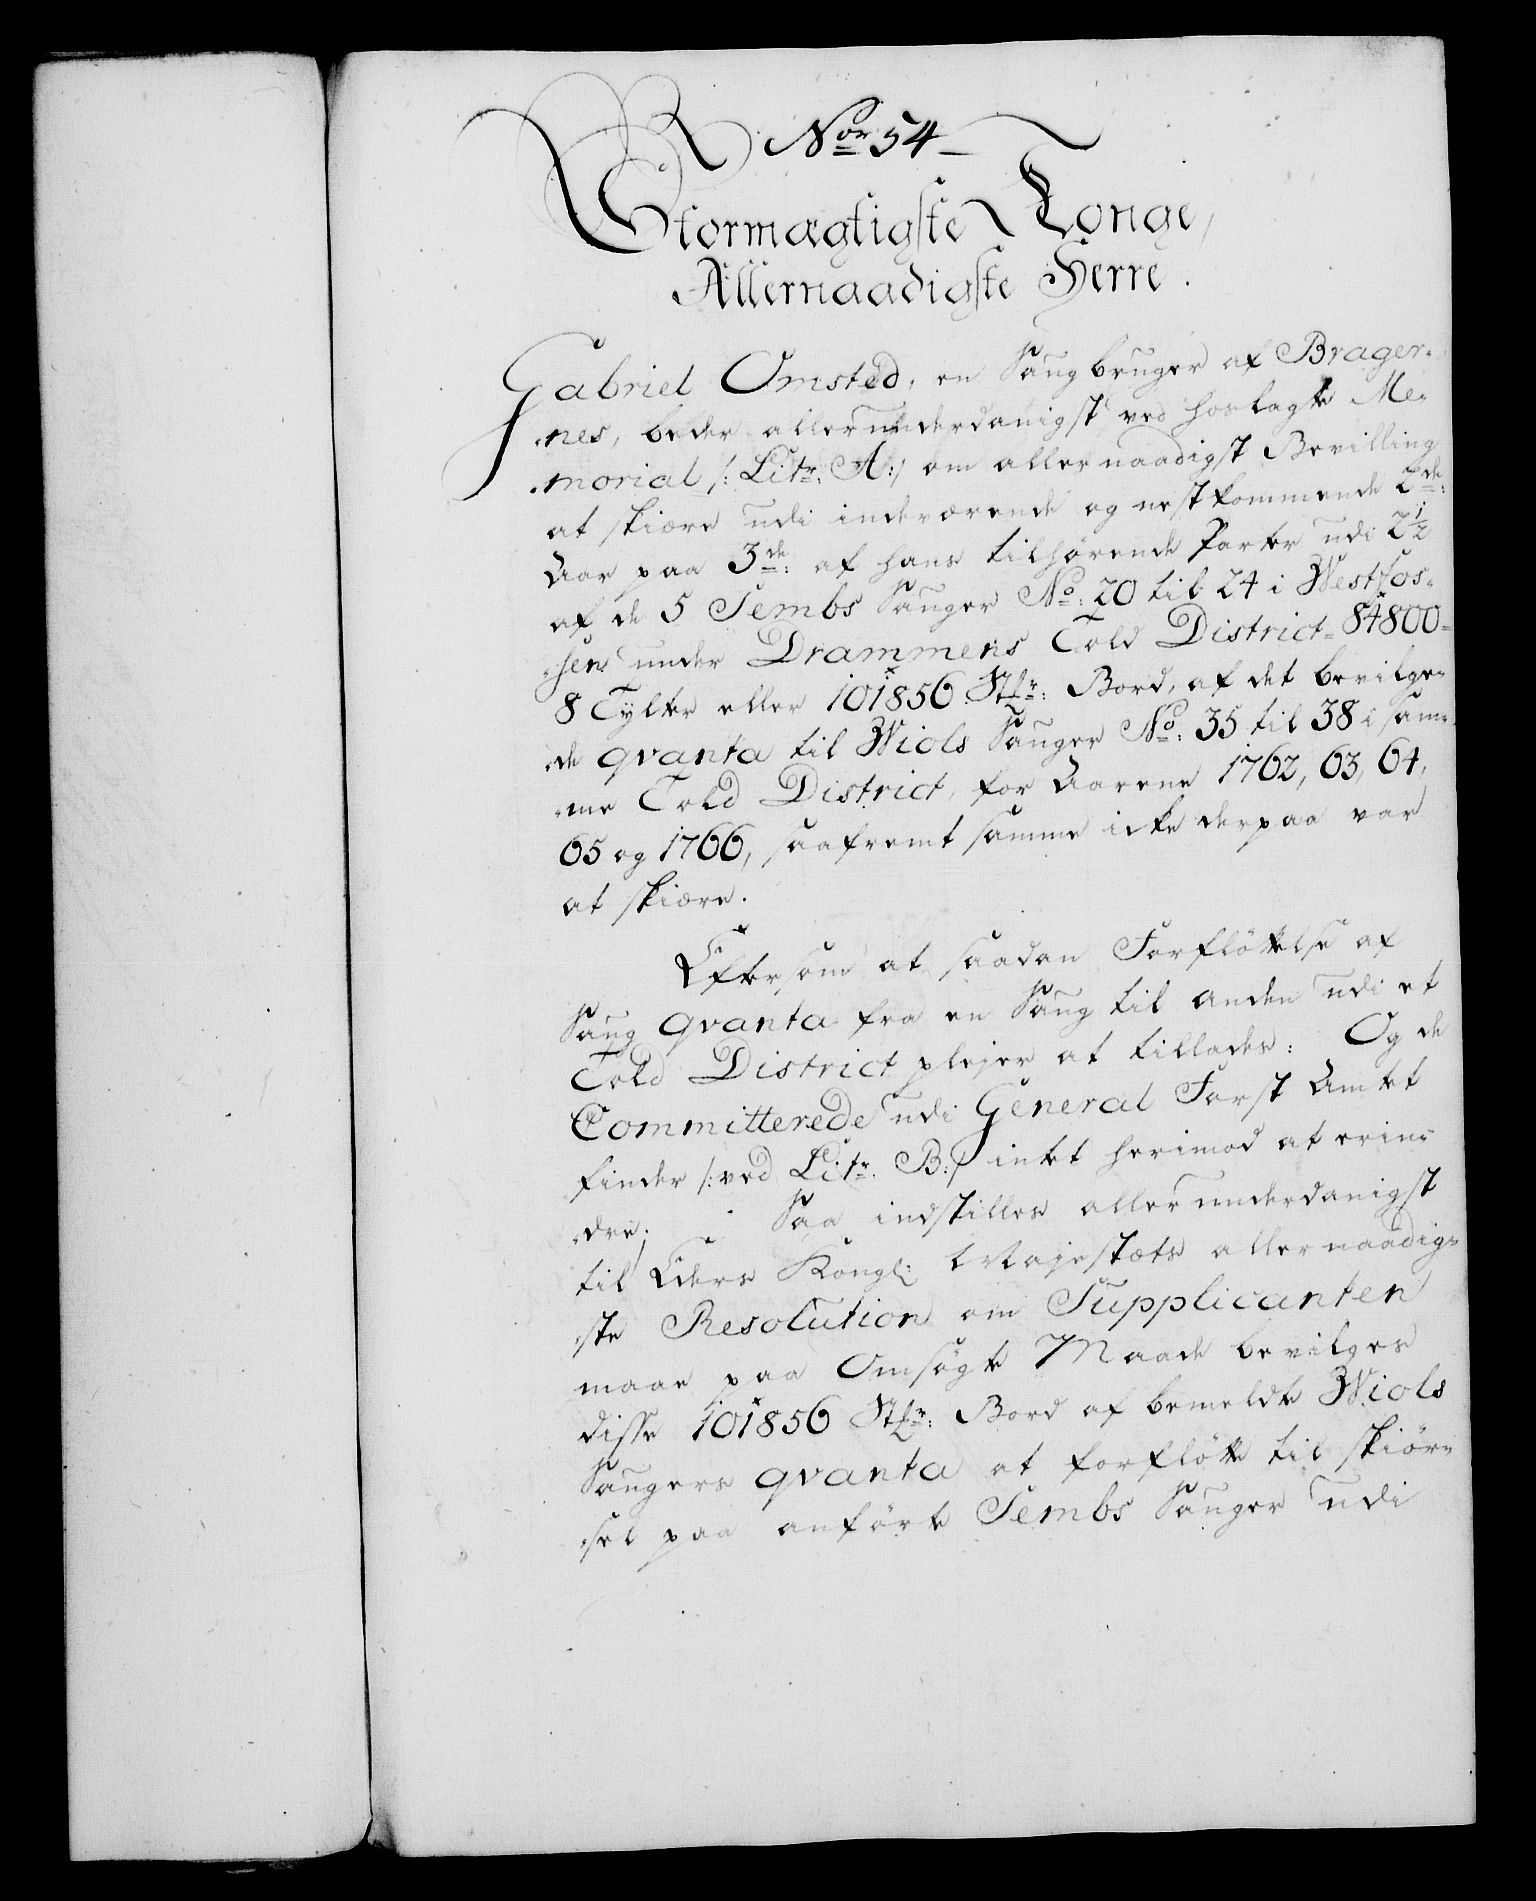 Nor 54
Stormægtigste Konge,
Allernaadigste Herre.
Gabriel Omsted, en Saugbruger af Brager-
-nes, beder allerunderdanigst ved hoslagte Me-
-morial /: Litr: A:/ om allernaadigst Bevilling
at skiære udi indeværende og nestkommende 2de:
Aar paa 3de: af hans tilhørende Parter udi 2½
af de 5 Sembs Sauger No: 20 til 24 i Westfos-
-sen under Drammens Told District 84800-
8 Tylter eller 101856 Stkr: Bord, af det bevilge-
-de qvanta til Wiols Sauger No: 35 til 38 i sam-
-me Told District, for Aarene 1762, 63, 64,
65 og 1766, saafremt samme icke derpaa var
at skiære.
Eftersom at saadan Forfløttelse af
Saug qvanta fra en Saug til anden udi et
Told District plejer at tillades: Og de
Committerede udi General Forst Amtet
finder /: ved Litr. B:/ intet herimod at erin-
-dre; Saa indstilles allerunderdanigst
til Eders Kongl: Majestæts allernaadig-
-ste Resolution om Supplicanten
maae paa Omsøgte Maade bevilges
disse 101856 Stkr: Bord af bemeldte Wiols
Saugers qvanta at forfløtte til skiør-
-sel paa anførte Sembs Sauger udi